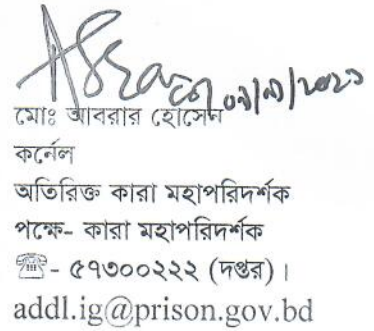 মোঃ আবরার হোসেন
কর্নেল
অতিরিক্ত কারা মহাপরিদর্শক
পক্ষে- কারা মহাপরিদর্শক
☎- ৫৭৩০০২২২ (দপ্তর) ।
addl.ig@prison.gov.bd